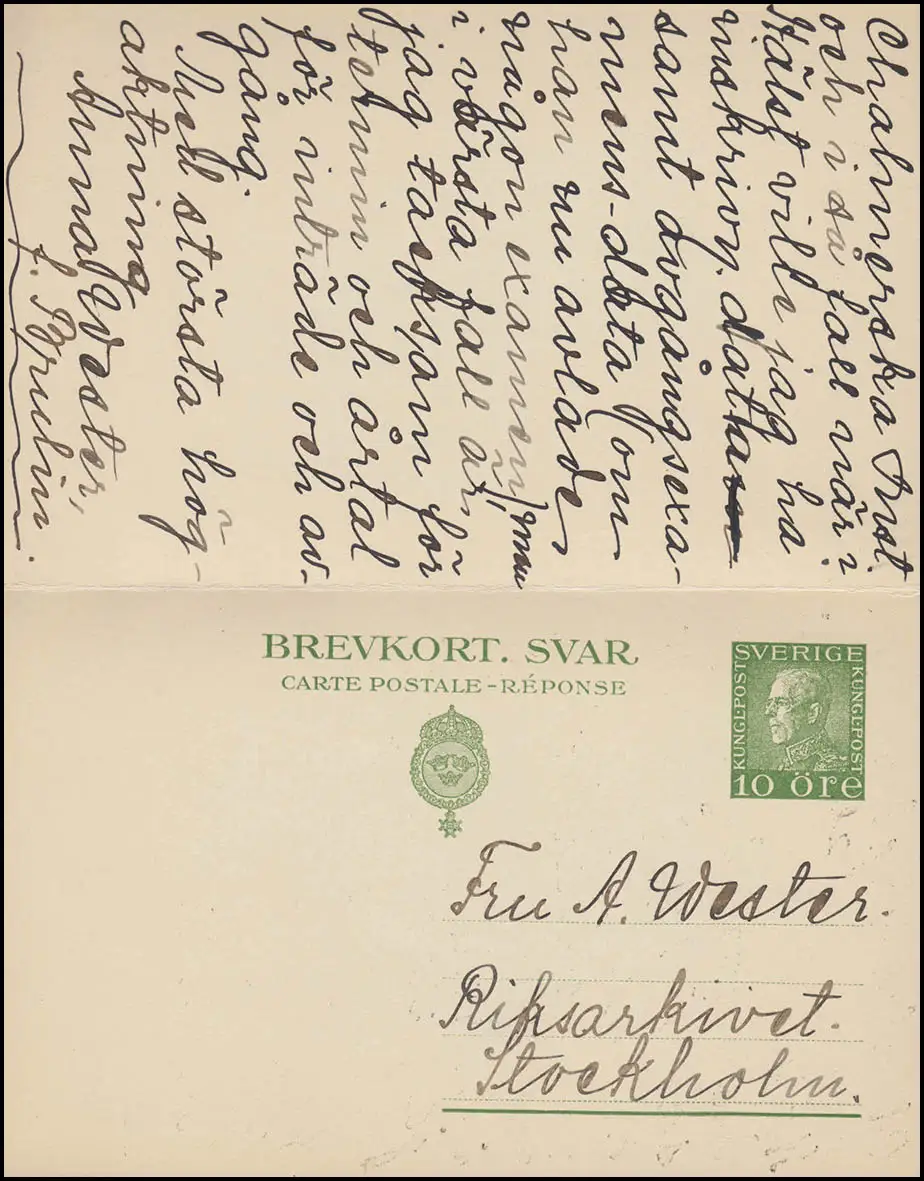 Chalmerska Inst.
och i så fall när?
Hälst ville jag ha
inskrivn. datta
samt avgångsexa-
mens-data (om
han nu avlade
någon examen), man
i värsta fall är
jag tacksam för
termin och årtal
för inträde och av-
gång.
Med största hög-
aktning
Anna Wester,
f. Brulin.
BREVKORT. SVAR
CARTE POSTALE-RÉPONSE
SVERIGE
KUNGL.POST
KUNGL.POST
10 öre
Fru A. Wester.
Riksarkivet.
Stockholm.